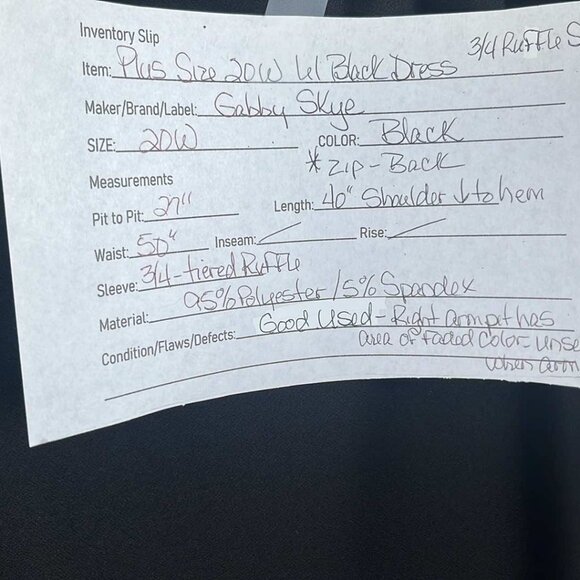 Inventory Slip
3/4 Ruffle S
Item: Plus Size 20W Lil Black Dress
Maker/Brand/Label: Gabby Skye
SIZE: 20W COLOR: Black
* Zip-Back
Measurements
Pit to Pit: 27" Length: 40" Shoulder ↓ to hem
Waist: 50" Inseam: Rise:
Sleeve: 3/4-tiered Ruffle
Material: 95% Polyester/5% Spandex
Condition/Flaws/Defects: Good Used-Right armpit has
area of Faded Color-unse
when arm